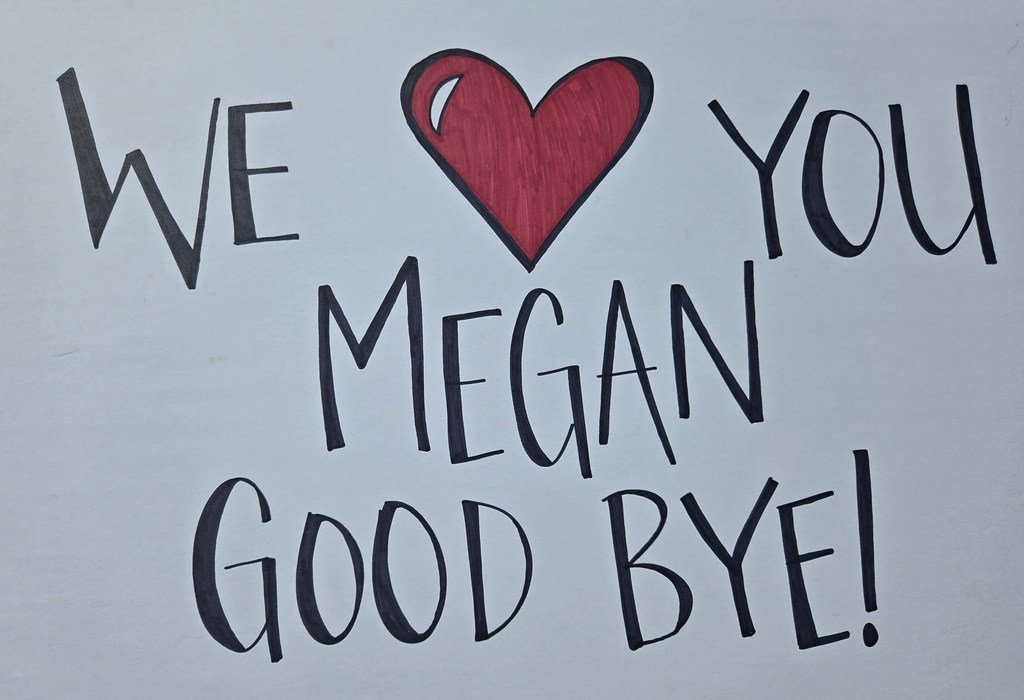 WE ❤ YOU
MEGAN
GOOD BYE!